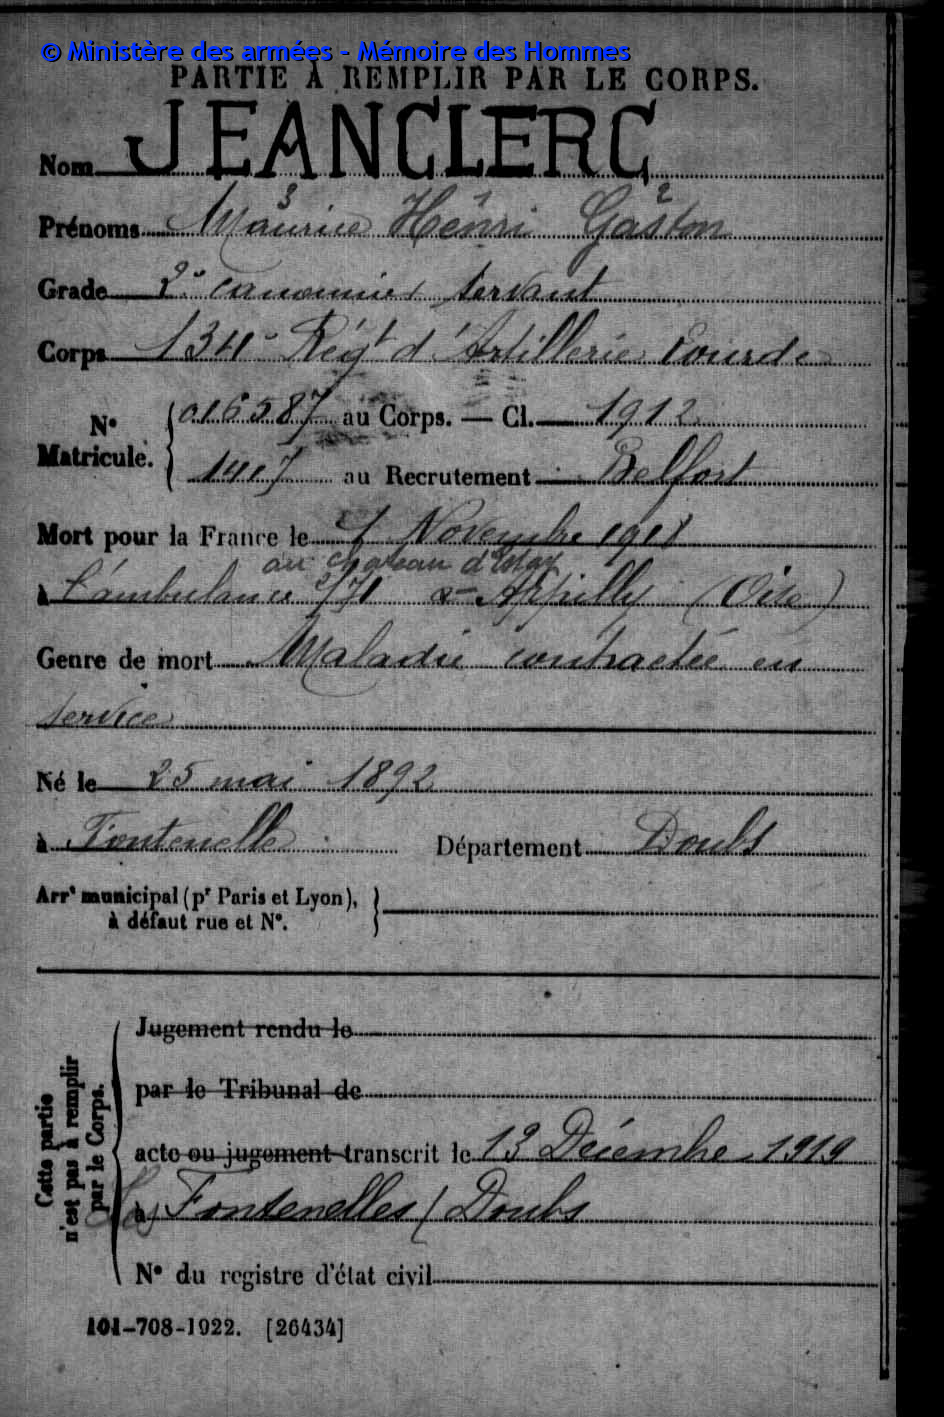 © Ministère des armées - Mémoire des Hommes
PARTIE À REMPLIR PAR LE CORPS.
Nom JEANCLERC
3 1 2
Prénoms Maurice Henri Gaston
Grade 2e canonnier servant
Corps 134e Régt d'Artillerie Lourde
No Matricule. { 016587 au Corps. — Cl. 1912
1417 au Recrutement Belfort
Mort pour la France le 4 Novembre 1918
au chateau d'
à L'ambulance à Appilly (Oise)
Genre de mort Maladie contractée en
service
Né le 25 mai 1892
à Fontenelle Département Doubs
Arrt municipal (pr Paris et Lyon), }
à défaut rue et No.
Cette partie
n'est pas à remplir
par le Corps.
Jugement rendu le
par le Tribunal de
acte ou jugement transcrit le 13 Décembre 1919
à Les Fontenelles (Doubs
No du registre d'état civil
101-708-1922. [26434]